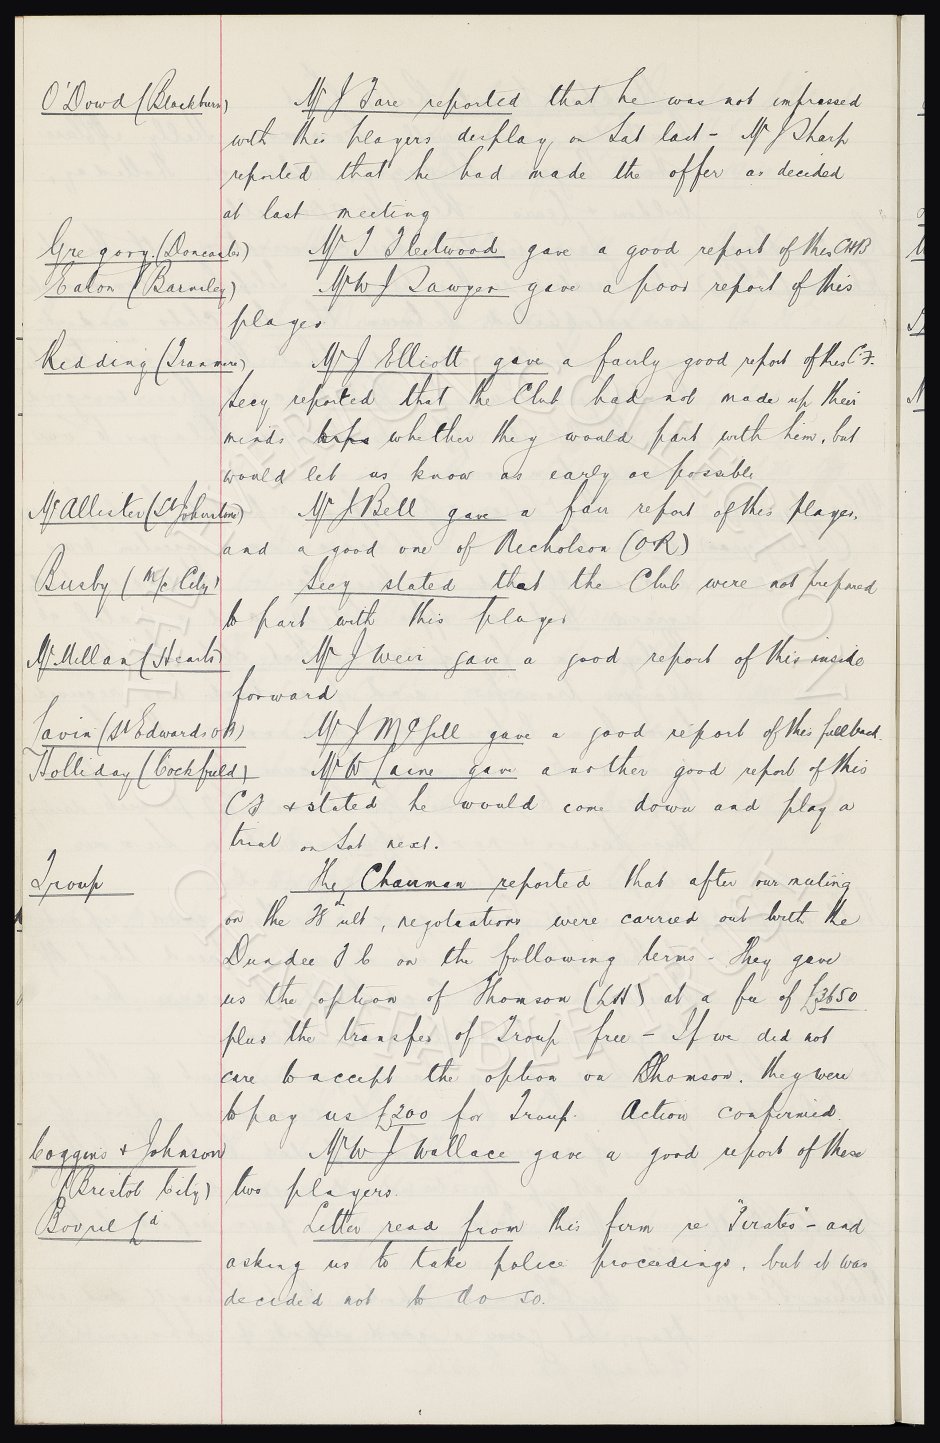 O'Dowd (Blackburn) Mr J Fare reported that he was not impressed
with this players display on Sat last - Mr J Sharp
reported that he had made the offer as decided
at last meeting
Gregory (Doncaster) Mr T Fleetwood gave a good report of this CHB
Eaton (Barnsley) Mr W J Sawyer gave a poor report of this
player
Redding (Tranmere) Mr J Elliott gave a fairly good report of this C.F.
Secy reported that the Club had not made up their
minds whether they would part with him, but
would let us know as early as possible
McAllister (St Johnstone) Mr J Bell gave a fair report of this player,
and a good one of Nicholson (OR)
Busby (M/c City) Secy stated that the Club were not prepared
to part with this player
McMillan (Hearts) Mr J Weir gave a good report of this inside
forward
Lavin (St Edwards OB) Mr J McGill gave a good report of this full back
Holliday (Cockfield) Mr W Laine gave another good report of this
CF & stated he would come down and play a
trial on Sat next.
Troup The Chairman reported that after our meeting
on the ult, negotiations were carried out with the
Dundee F C on the following terms - They gave
us the option of Thomson (LH) at a fee of £3650
plus the transfer of Troup free - If we did not
care to accept the option on Thomson. they were
to pay us £200 for Troup. Action confirmed.
Coggins & Johnson Mr W J Wallace gave a good report of these
(Bristol City) two players.
Bovril Ld Letter read from this firm re "Pirates" - and
asking us to take police proceedings, but it was
decided not to do so.